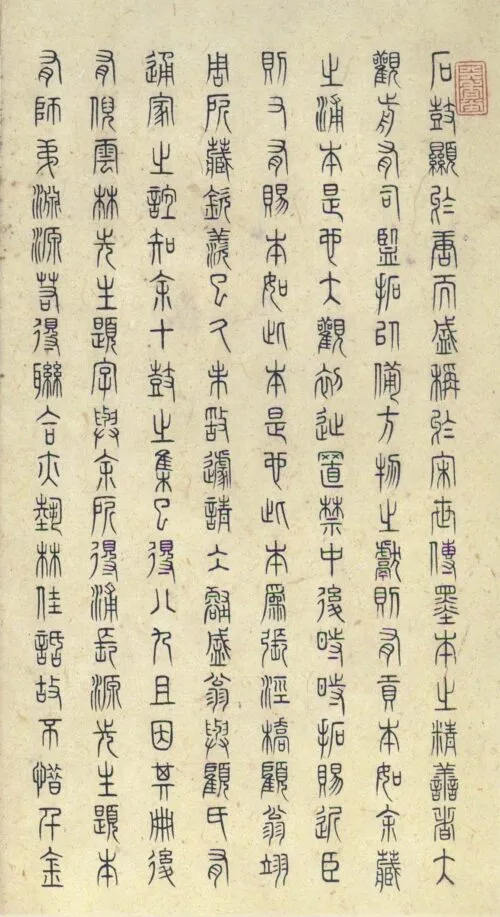 石鼓顯於唐而盛稱於宋世傳墨本之精善者大
觀前有司監拓以備方物之獻則有貢本如余藏
之浦本是也大觀初徙置禁中後時時拓賜近臣
則又有賜本如此本是也此本為張涇橋顧翁翊
周所藏欽羨已久未敢遽請谿盛翁與顧氏有
通家之誼知余十鼓之集已得八九且因其冊後
有倪雲林先生題字與余所得浦長源先生題本
有師弟淵源若得聯合亦藝林佳話故不惜千金